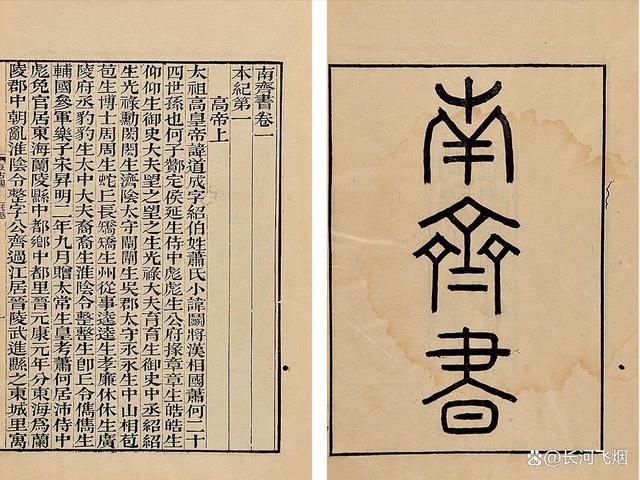 南齊書
南齊書卷一
本紀第一
高帝上
太祖高皇帝諱道成字紹伯姓蕭氏小諱鬭將漢相國蕭何二十
四世孫也何子酇定侯延生侍中彪彪生公府掾章章生皓皓生
仰仰生御史大夫望之望之生光祿大夫育育生御史中丞紹紹
生光祿勳閎閎生濟陰太守闡闡生吳郡太守永永生中山相苞
苞生博士周周生蛇丘長矯矯生州從事逵逵生孝廉休休生廣
陵府丞豹豹生太中大夫裔裔生淮陰令整整生卽丘令儁儁生
輔國參軍樂子宋昇明二年九月贈太常生皇考蕭何居沛侍中
彪免官居東海蘭陵縣中都鄉中都里晉元康元年分東海爲蘭
陵郡中朝亂淮陰令整字公齊過江居晉陵武進縣之東城里寓
@长河飞烟